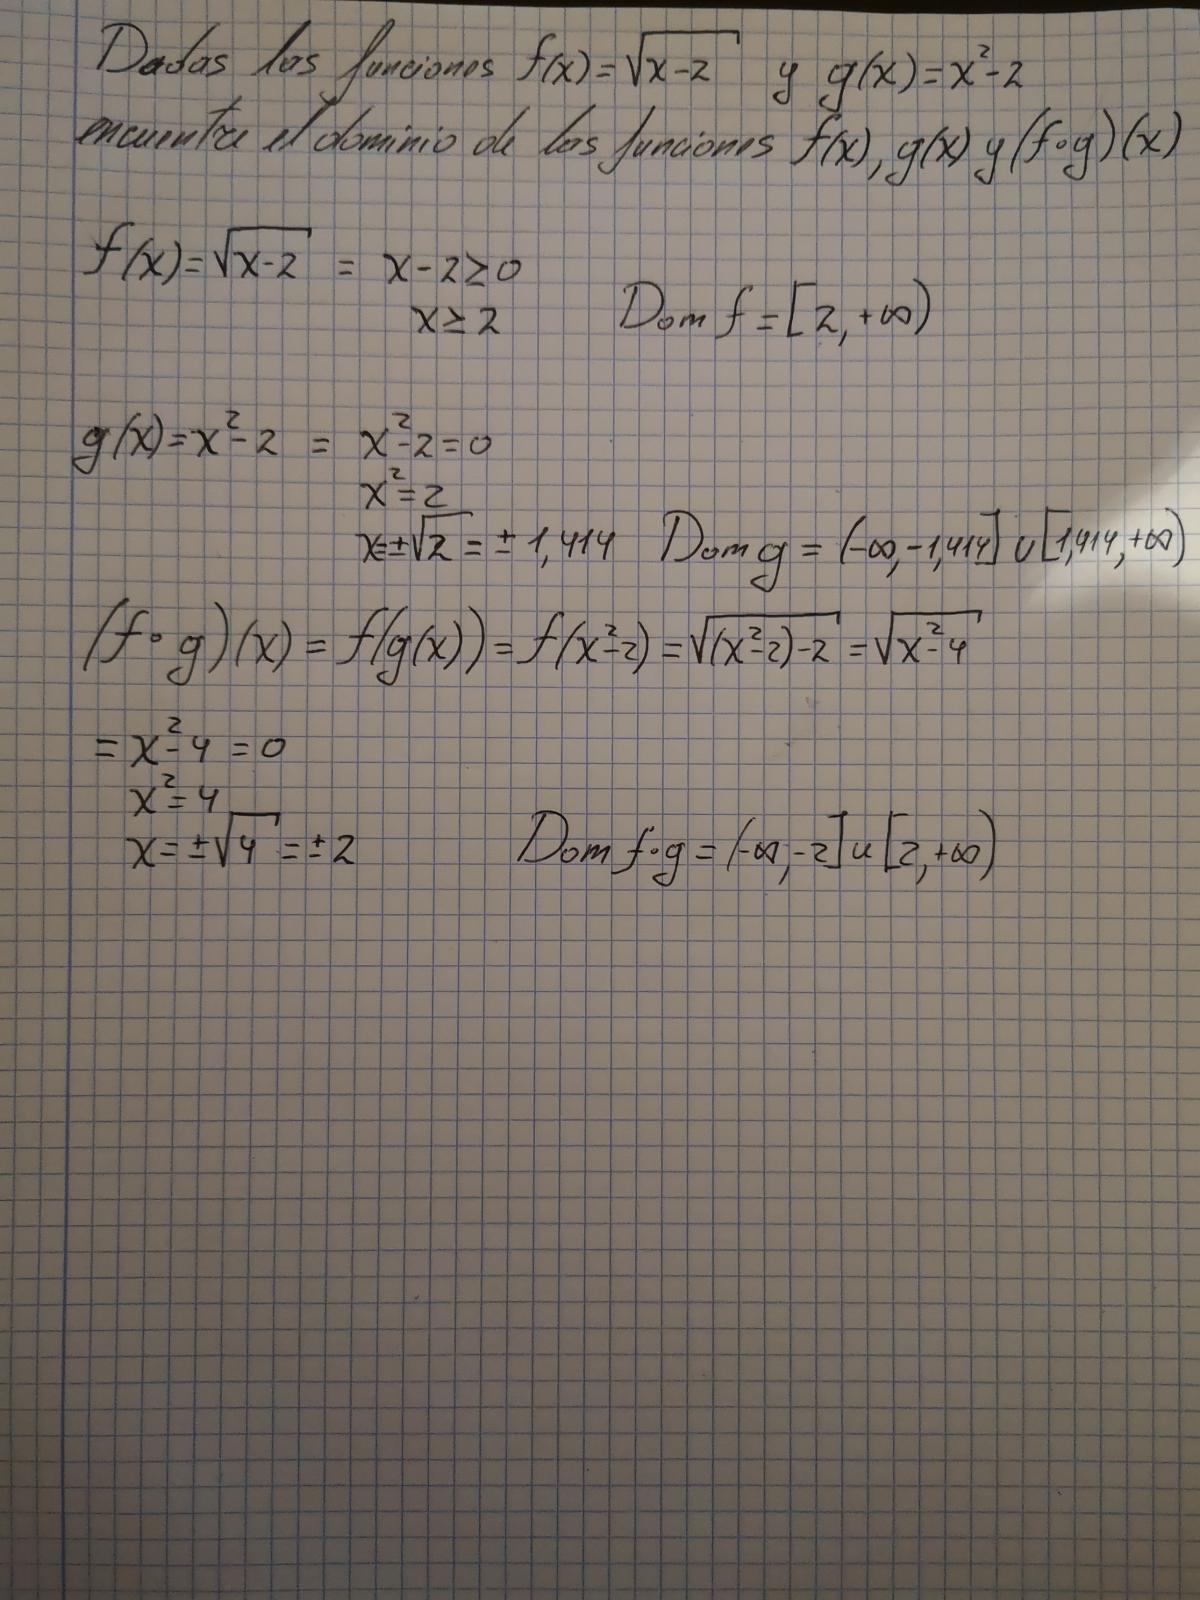 Dadas las funciones f(x)=√(x-2) y g(x)=x²-2
encuentre el dominio de las funciones f(x), g(x) y (f∘g)(x)
f(x)=√(x-2) = x-2≥0
x≥2 Dom f = [2,+∞)
g(x)=x²-2 = x²-2=0
x²=2
x=±√2=±1,414 Dom g = (-∞,-1,414] ∪ [1,414,+∞)
(f∘g)(x) = f(g(x)) = f(x²-2) = √((x²-2)-2) = √(x²-4)
= x²-4=0
x²=4
x=±√4=±2 Dom f∘g = (-∞,-2] ∪ [2,+∞)